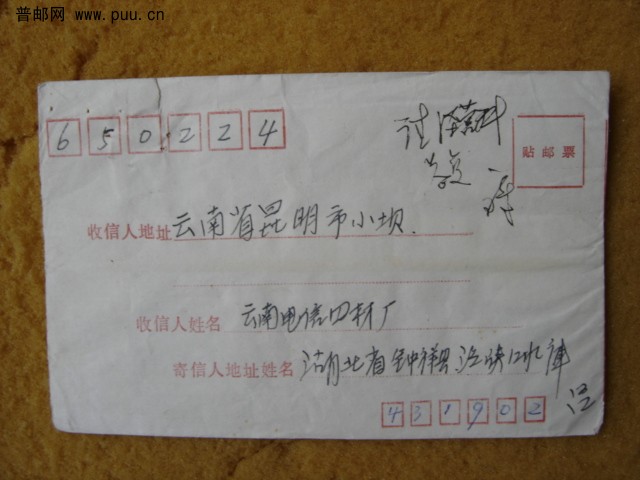 普邮网 www.puu.cn
650224
贴邮票
收信人地址 云南省昆明市小坝.
收信人姓名 云南电信四材厂
寄信人地址姓名 湖北省钟祥县 水库
431902